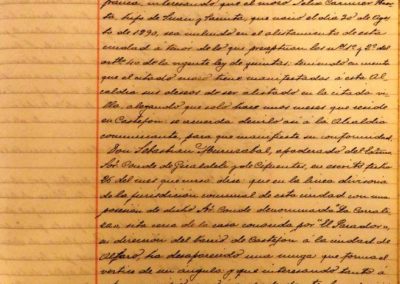 franca, interesando que el mozo Félix Casimiro
ta, hijo de Juan y Juanita, que nació el día 20 de Agos
to de 1890, sea incluido en el alistamiento de esta
ciudad á tenor de lo que preceptuan los nos 1º y 2º del
artº 40 de la vigente ley de quintas: teniendo en cuenta
que el citado mozo tiene manifestados á esta Al
caldia sus deseos de ser alistado en la citada vi
lla, alegando que solo hace unos meses que reside
en Castejon, se acuerda decirlo asi á la Alcaldia
comunicante, para que manifieste su conformidad.
Don Sebastian apoderado del Excmo
Sor Conde de y de Cifuentes, en escrito fecha
26 del mes que dice que en la linea divisoria
de la jurisdiccion comunal de esta ciudad con una
posesion de dicho Sr Conde denominada "La
sita cerca de la casa conocida por "El Parador",
en direccion del tramo de Castejon á la ciudad de
Alfaro, ha desaparecido una muga que forma el
vertice de un angulo y que interesando tanto á